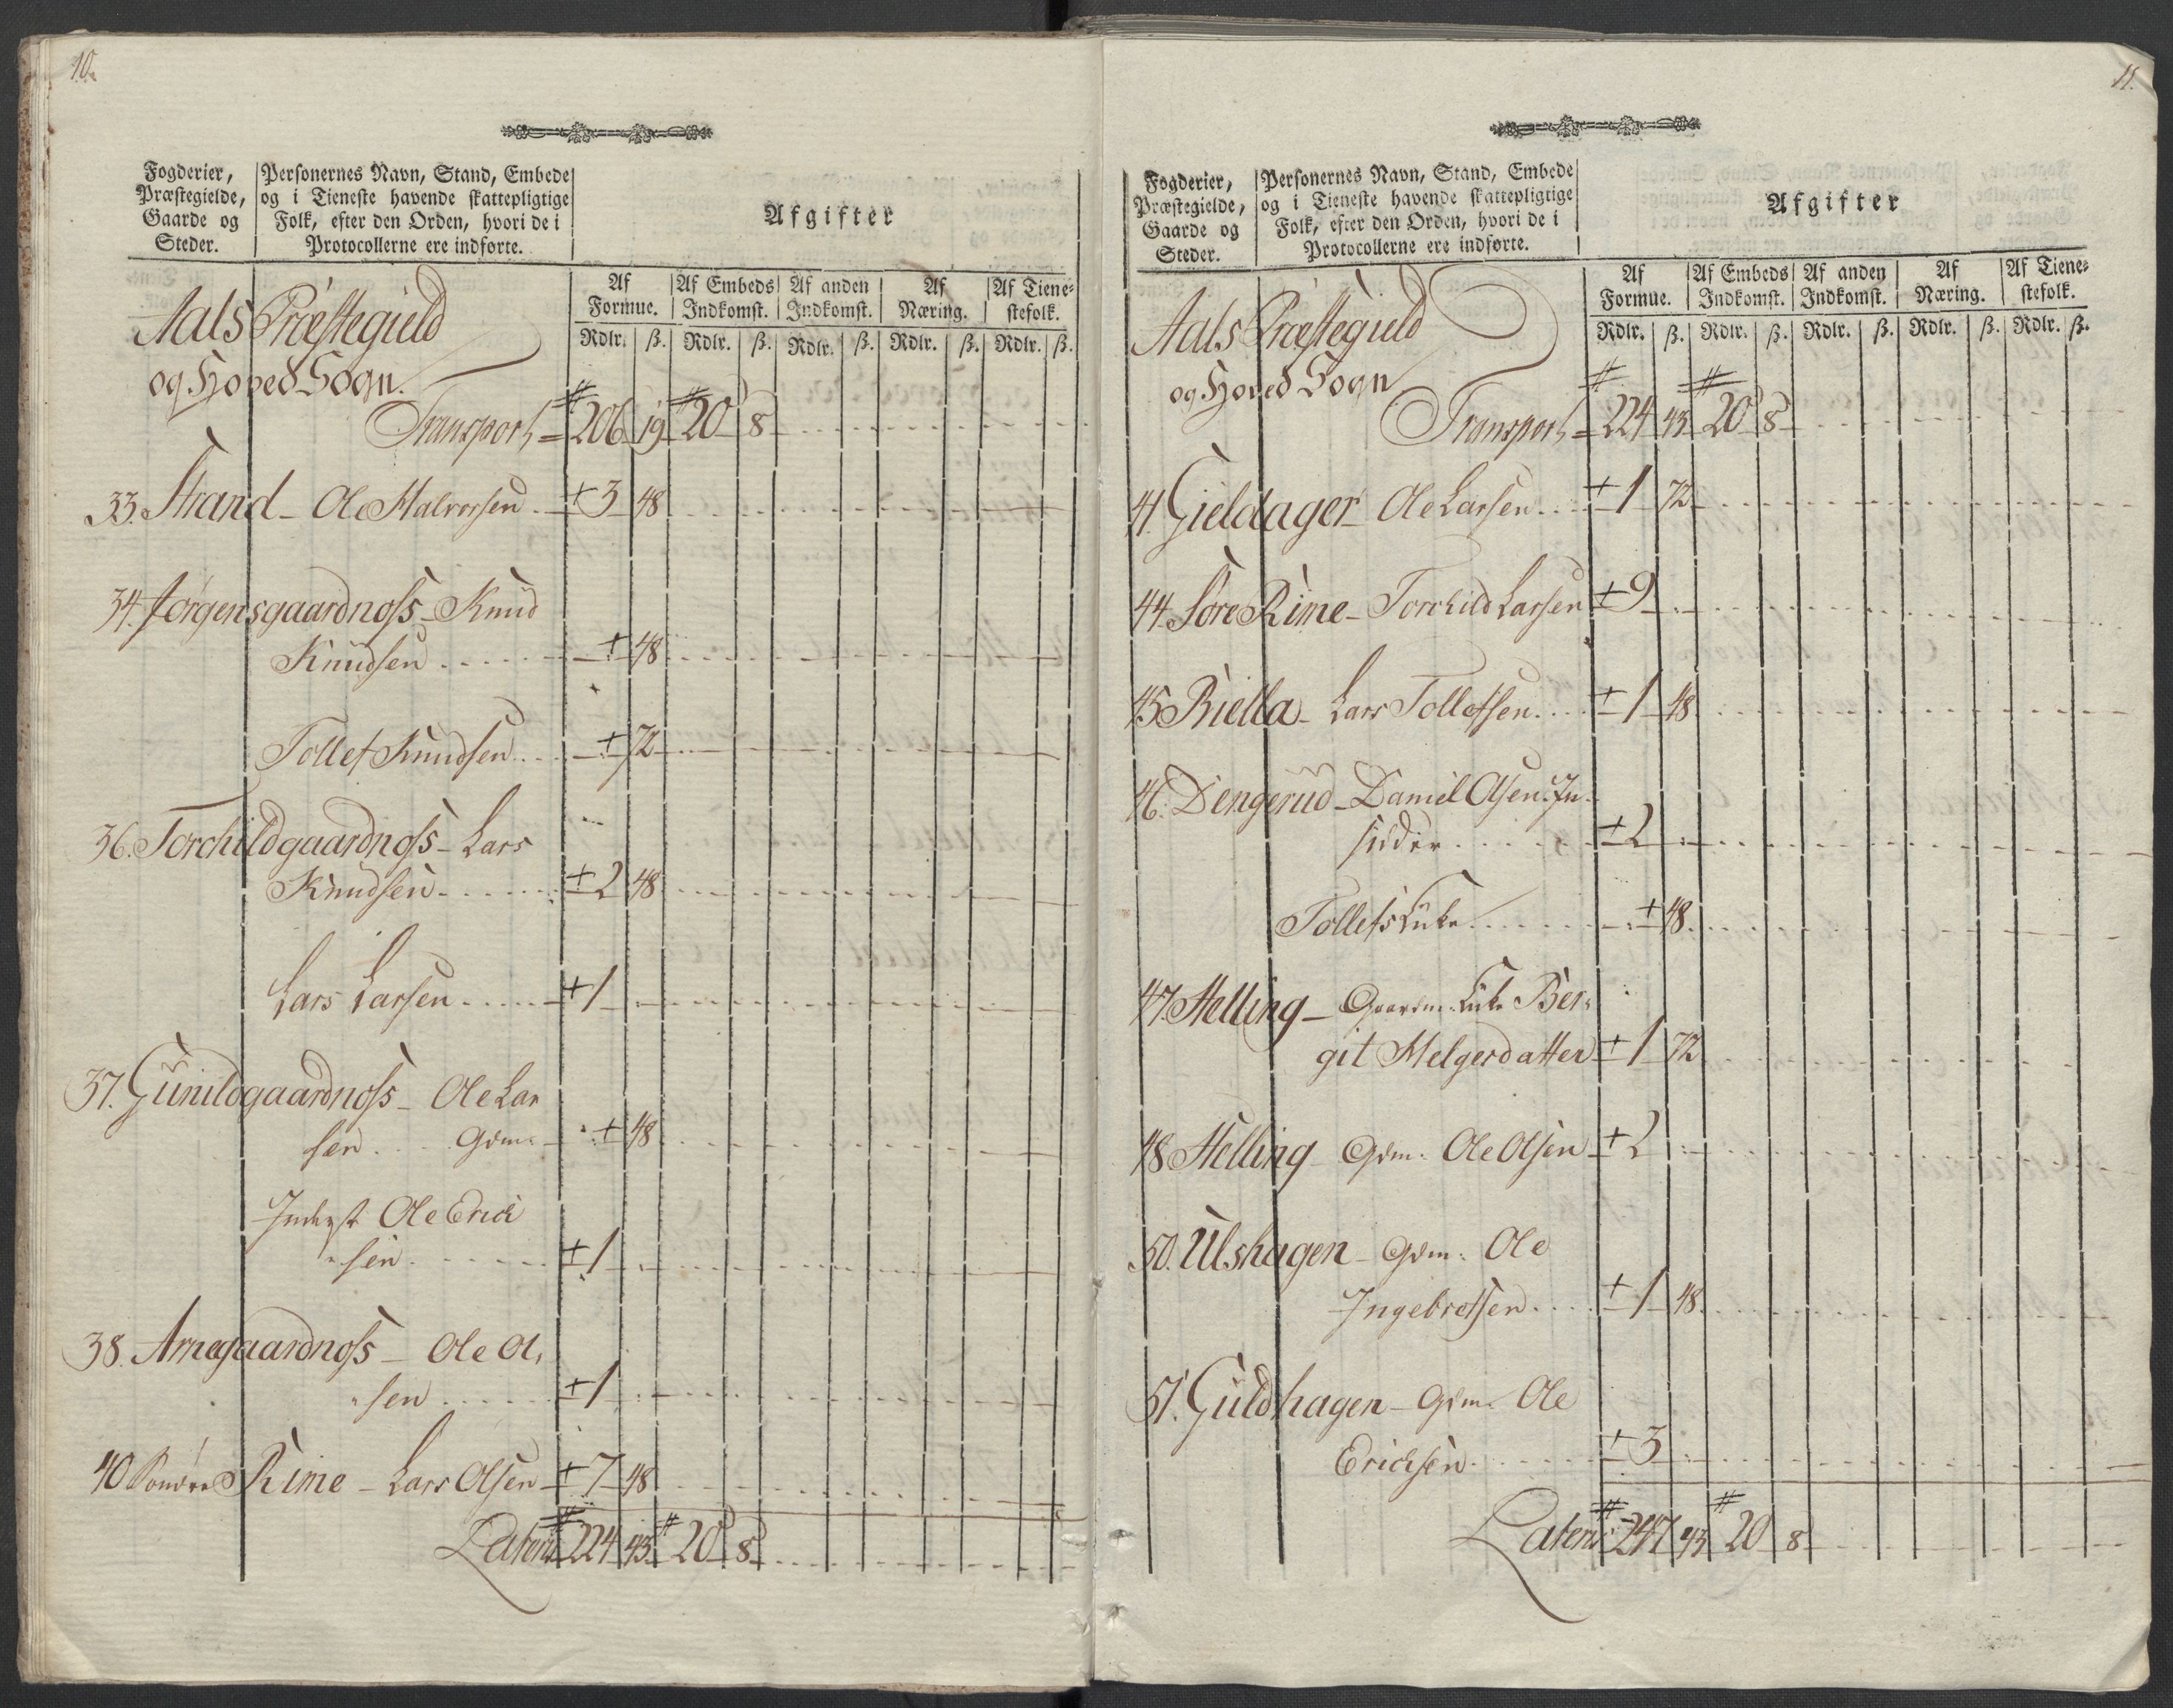 10.
Fogderier,
Præstegielde,
Gaarde og
Steder.
Personernes Navn, Stand, Embede
og i Tieneste havende skattepligtige
Folk, efter den Orden, hvori de i
Protocollerne ere indførte.
Afgifter
Af Formue. Af Embeds Indkomst. Af anden Indkomst. Af Næring. Af Tienestefolk.
Rdlr. ß. Rdlr. ß. Rdlr. ß. Rdlr. ß. Rdlr. ß.
Aals Præstegield
og Hoved-Sogn.
Transport = 206 19 20 8
33. Strand - Ole Halvorsen 3 48
34. Jørgensgaardnoss - Knud
Knudsen 48
Tollef Knudsen 72
36. Torchildgaardnoss - Lars
Knudsen 2 48
Lars Larsen 1
37. Gunildgaardnoss - Ole Lar
sen Gdm: 48
Inderst Ole Erick
sen 1
38. Arnegaardnoss - Ole Ol,
sen 1
40 Søndre Rime - Lars Olsen 7 48
Lateris 224 43 20 8
11.
Fogderier,
Præstegielde,
Gaarde og
Steder.
Personernes Navn, Stand, Embede
og i Tieneste havende skattepligtige
Folk, efter den Orden, hvori de i
Protocollerne ere indførte.
Afgifter
Af Formue. Af Embeds Indkomst. Af anden Indkomst. Af Næring. Af Tienestefolk.
Rdlr. ß. Rdlr. ß. Rdlr. ß. Rdlr. ß. Rdlr. ß.
Aals Præstegield
og Hoved Sogn
Transport = 224 43 20 8
41. Gieldager - Ole Larsen 1 72
44. Søre Rime - Torchild Larsen 9
45 Riella - Lars Tollefsen 1 48
46. Dengerud - Daniel Olsen In-
sidder 2
Tollefs Enke 48
47. Helling - Gaardm: Enke Ber:
git Helgesdatter 1 72
48 Helling - Gdm: Ole Olsen 2
50. Ulshagen - Gdm: Ole
Ingebretsen 1 48
51. Guldhagen - Gdm. Ole
Erichsen 3
Lateris 247 43 20 8